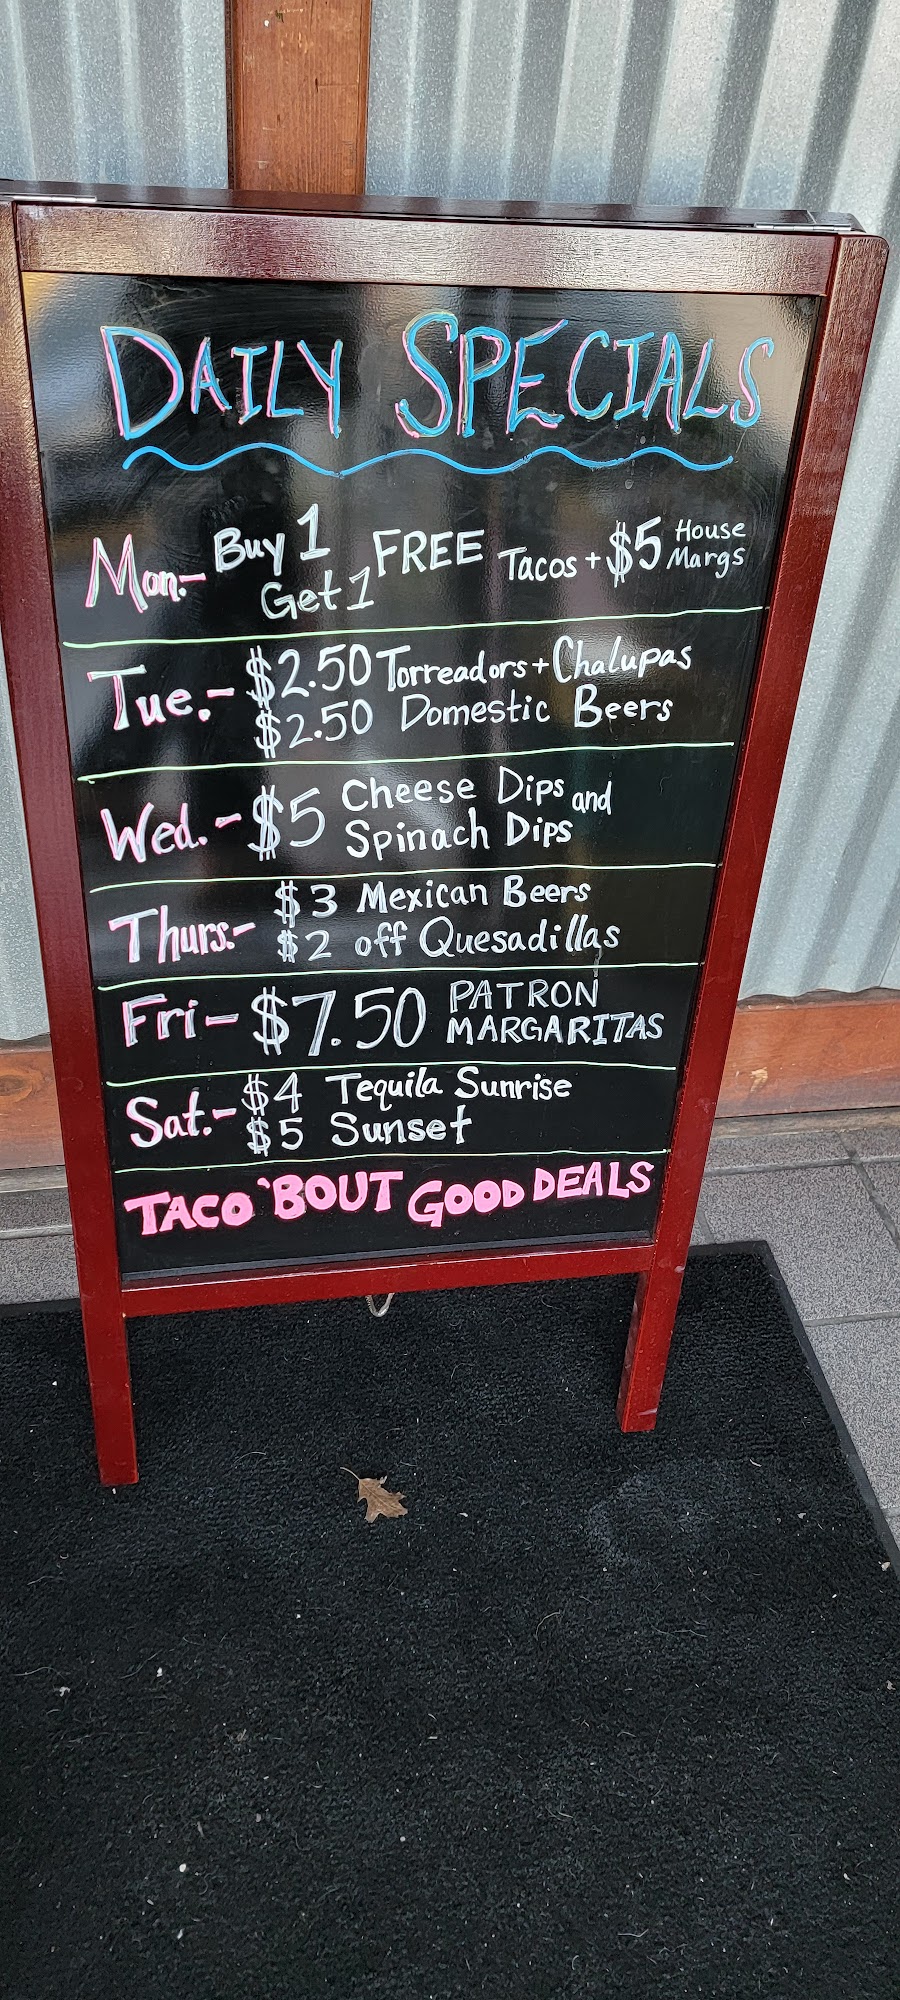 DAILY SPECIALS
Mon.- Buy 1 Get 1 FREE Tacos + $5 House Margs
Tue.- $2.50 Torreadors + Chalupas
$2.50 Domestic Beers
Wed.- $5 Cheese Dips and
Spinach Dips
Thurs.- $3 Mexican Beers
$2 off Quesadillas
Fri- $7.50 PATRON
MARGARITAS
Sat.- $4 Tequila Sunrise
$5 Sunset
TACO 'BOUT GOOD DEALS